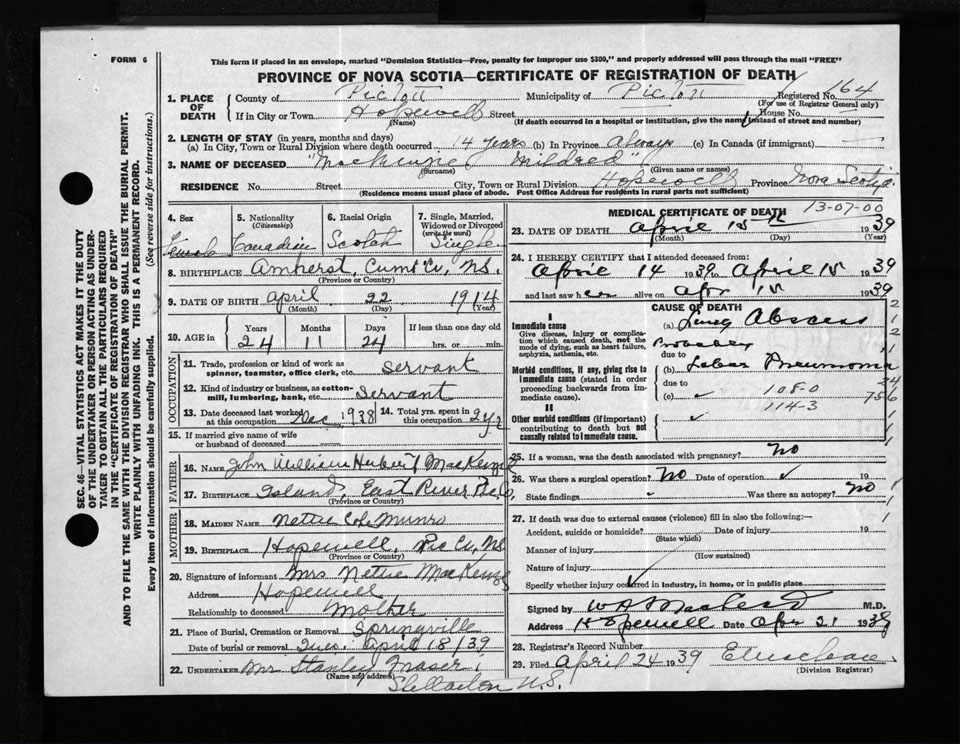 FORM 6
This form if placed in an envelope, marked "Dominion Statistics—Free, penalty for improper use $300," and properly addressed will pass through the mail "FREE"
PROVINCE OF NOVA SCOTIA—CERTIFICATE OF REGISTRATION OF DEATH
1. PLACE OF DEATH County of Pictou Municipality of Pictou Registered No. 164
(For use of Registrar General only)
If in City or Town Hopewell Street House No.
(Name) (If death occurred in a hospital or institution, give the name instead of street and number)
2. LENGTH OF STAY (in years, months and days)
(a) In City, Town or Rural Division where death occurred 14 years (b) In Province Always (c) In Canada (if immigrant) —
3. NAME OF DECEASED "Mackenzie Mildred"
(Surname) (Given name or names)
RESIDENCE No. Street City, Town or Rural Division Hopewell Province Nova Scotia
(Residence means usual place of abode. Post Office Address for residents in rural parts not sufficient)
4. Sex 5. Nationality (Citizenship) 6. Racial Origin 7. Single, Married, Widowed or Divorced (write the word)
Female Canadian Scotch Single
8. BIRTHPLACE Amherst, Cumb Co, N.S.
(Province or Country)
9. DATE OF BIRTH April 22 1914
(Month) (Day) (Year)
10. AGE in Years Months Days If less than one day old
24 11 24 hrs. or min.
OCCUPATION
11. Trade, profession or kind of work as spinner, teamster, office clerk, etc. servant
12. Kind of industry or business, as cotton-mill, lumbering, bank, etc. Servant
13. Date deceased last worked at this occupation Dec 1938 14. Total yrs. spent in this occupation 2½
15. If married give name of wife or husband of deceased
FATHER
16. NAME John William Hubert MacKenzie
17. BIRTHPLACE Island, East River Pic Co,
(Province or Country)
MOTHER
18. MAIDEN NAME Nettie Munro
19. BIRTHPLACE Hopewell, Pic Co, NS
(Province or Country)
20. Signature of informant Mrs Nettie MacKenzie
Address Hopewell
Relationship to deceased Mother
21. Place of Burial, Cremation or Removal Springville
Date of burial or removal Tues. April 18/39
22. UNDERTAKER Mr Stanley Fraser,
(Name and address)
Stellarton N.S.
MEDICAL CERTIFICATE OF DEATH 13-07-00
23. DATE OF DEATH April 15th 1939
(Month) (Day) (Year)
24. I HEREBY CERTIFY that I attended deceased from:
April 14 1939 to April 15 1939
and last saw her alive on Apr 15 1939
CAUSE OF DEATH
I
Immediate cause
Give disease, injury or complication which caused death, not the mode of dying, such as heart failure, asphyxia, asthenia, etc.
(a) Lung Abscess
Probably
due to
Morbid conditions, if any, giving rise to immediate cause (stated in order proceeding backwards from immediate cause).
(b) Lobar Pneumonia
due to
(c) 108-0
114-3
II
Other morbid conditions (if important) contributing to death but not causally related to immediate cause.
25. If a woman, was the death associated with pregnancy? No
26. Was there a surgical operation? No Date of operation
State findings Was there an autopsy? No
27. If death was due to external causes (violence) fill in also the following:—
Accident, suicide or homicide? Date 19
(State which)
Manner of injury
(How sustained)
Nature of injury
Specify whether injury occurred in industry, in home, or in public place
Signed by W A MacLeod M.D.
Address Hopewell Date Apr 21 1939
28. Registrar's Record Number
29. Filed April 24 1939
(Division Registrar)
SEC. 46—VITAL STATISTICS ACT MAKES IT THE DUTY
OF THE UNDERTAKER OR PERSON ACTING AS UNDERTAKER TO OBTAIN ALL THE PARTICULARS REQUIRED
IN THE "CERTIFICATE OF REGISTRATION OF DEATH"
AND TO FILE THE SAME WITH THE DIVISION REGISTRAR WHO SHALL ISSUE THE BURIAL PERMIT.
WRITE PLAINLY WITH UNFADING INK. THIS IS A PERMANENT RECORD.
Every item of information should be carefully supplied. (See reverse side for instructions.)